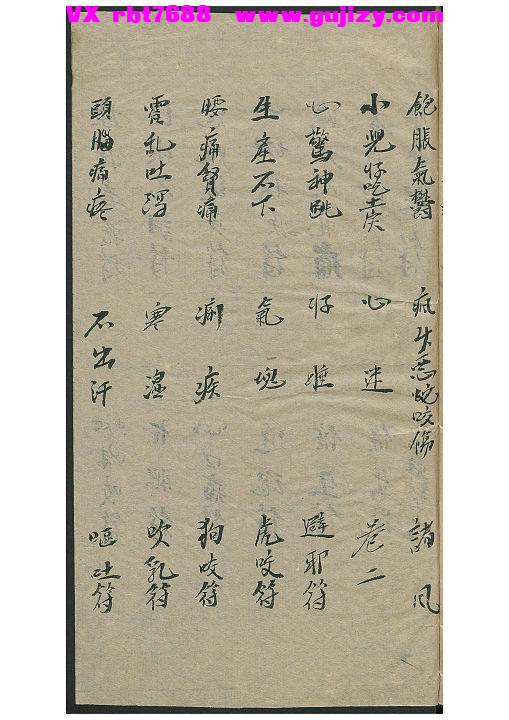 VX rbt7688 www.gujizy.com
飽脹氣鬱 瘋犬惡蛇咬傷 諸風
小兒好吃土炭 心迷 卷二
心驚神跳 好睡 避邪符
生產不下 氣塊 虎咬符
腰痛腎痛 痢疾 狗咬符
霍乱吐瀉 寒濕 吹乳符
頭腦痛疼 不出汗 嘔吐符